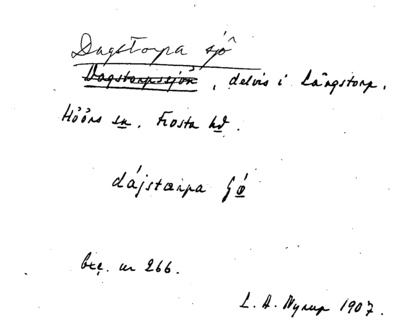 Dagstorpa sjö
Dagstorpssjön, delvis i Långstorp,
Höörs sn. Frosta hd.
dájstarpa ʃǿ
bex. nr 266.
L. A. Nyrup 1907.